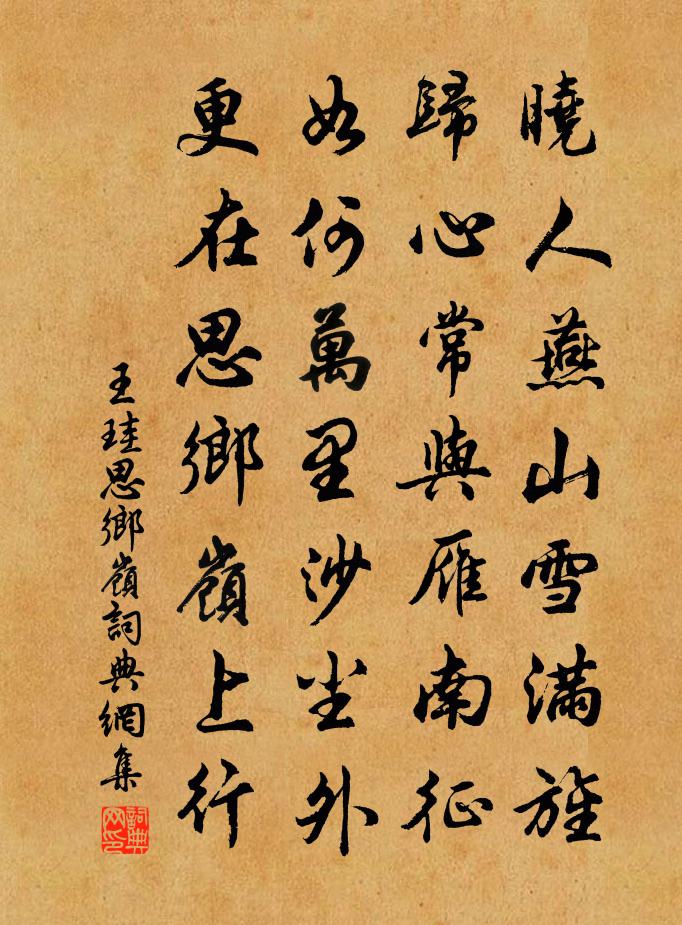 曉人燕山雪滿旌
歸心常與雁南征
如何萬里沙尘外
更在思鄉嶺上行
王珪思鄉嶺詞典網集
詞典
网印